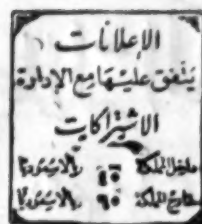 الإعلانات
يتفق عليها مع الإدارة
الاشتراكات
داخل المملكة ريالا سنويا
خارج المملكة ٦٠ ريالا سنويا